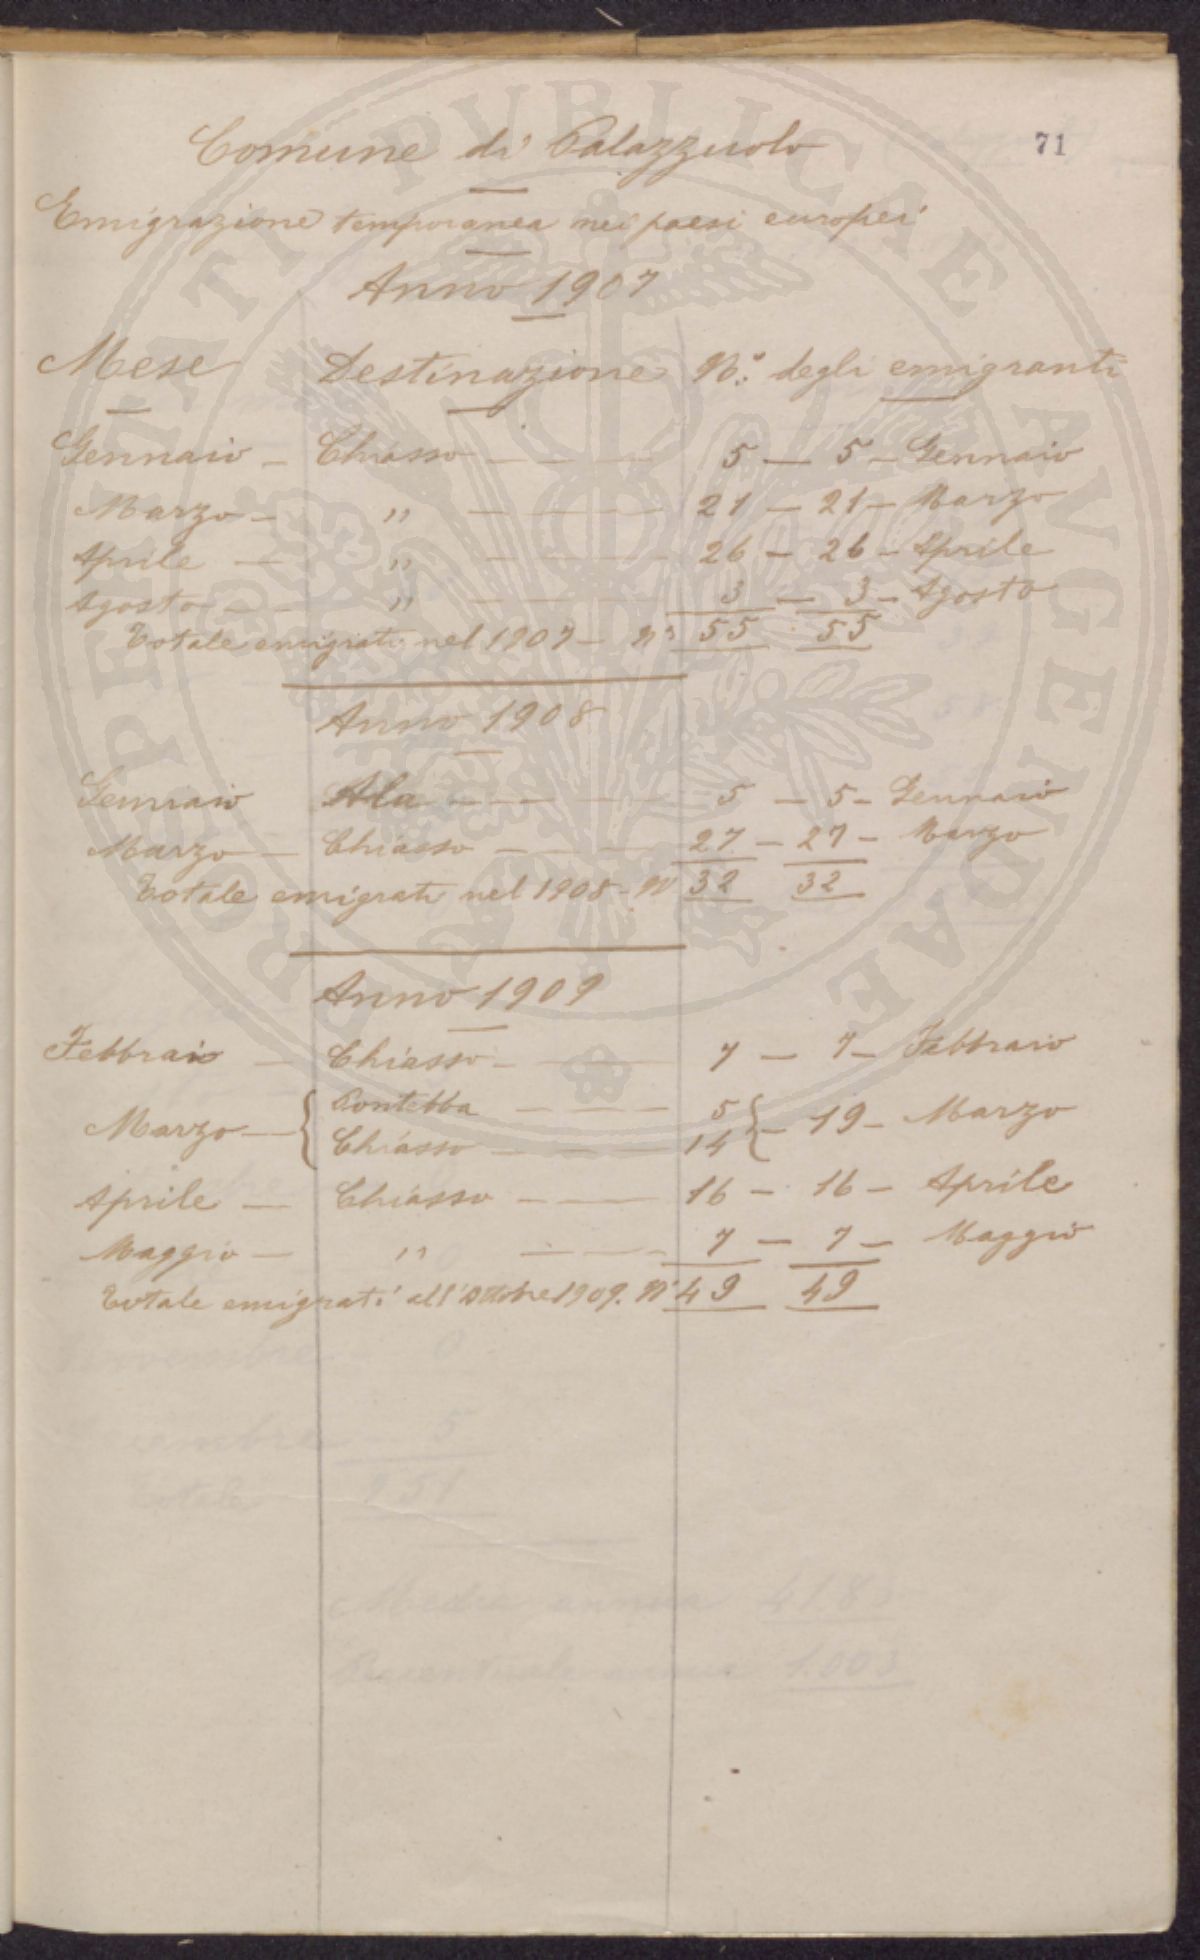 71
Comune di Palazzuolo
Emigrazione temporanea nei paesi europei
Anno 1907
Mese Destinazione N.º degli emigranti
Gennaio - Chiasso - - - 5 - 5 - Gennaio
Marzo - " - - - 21 - 21 - Marzo
Aprile - " - - - 26 - 26 - Aprile
Agosto - - " - - - 3 - 3 - Agosto
Totale emigrati nel 1907 - Nº 55 55
Anno 1908
Gennaio Ala - - - 5 - 5 - Gennaio
Marzo - Chiasso - - - 27 - 27 - Marzo
Totale emigrati nel 1908 - Nº 32 32
Anno 1909
Febbraio - Chiasso - - - 7 - 7 - Febbraio
Pontebba - - - 5
Marzo - { } - 19 - Marzo
Chiasso - - - 14
Aprile - Chiasso - - - 16 - 16 - Aprile
Maggio - " - - - 7 - 7 - Maggio
Totale emigrati all'Ottobre 1909. Nº 49 49